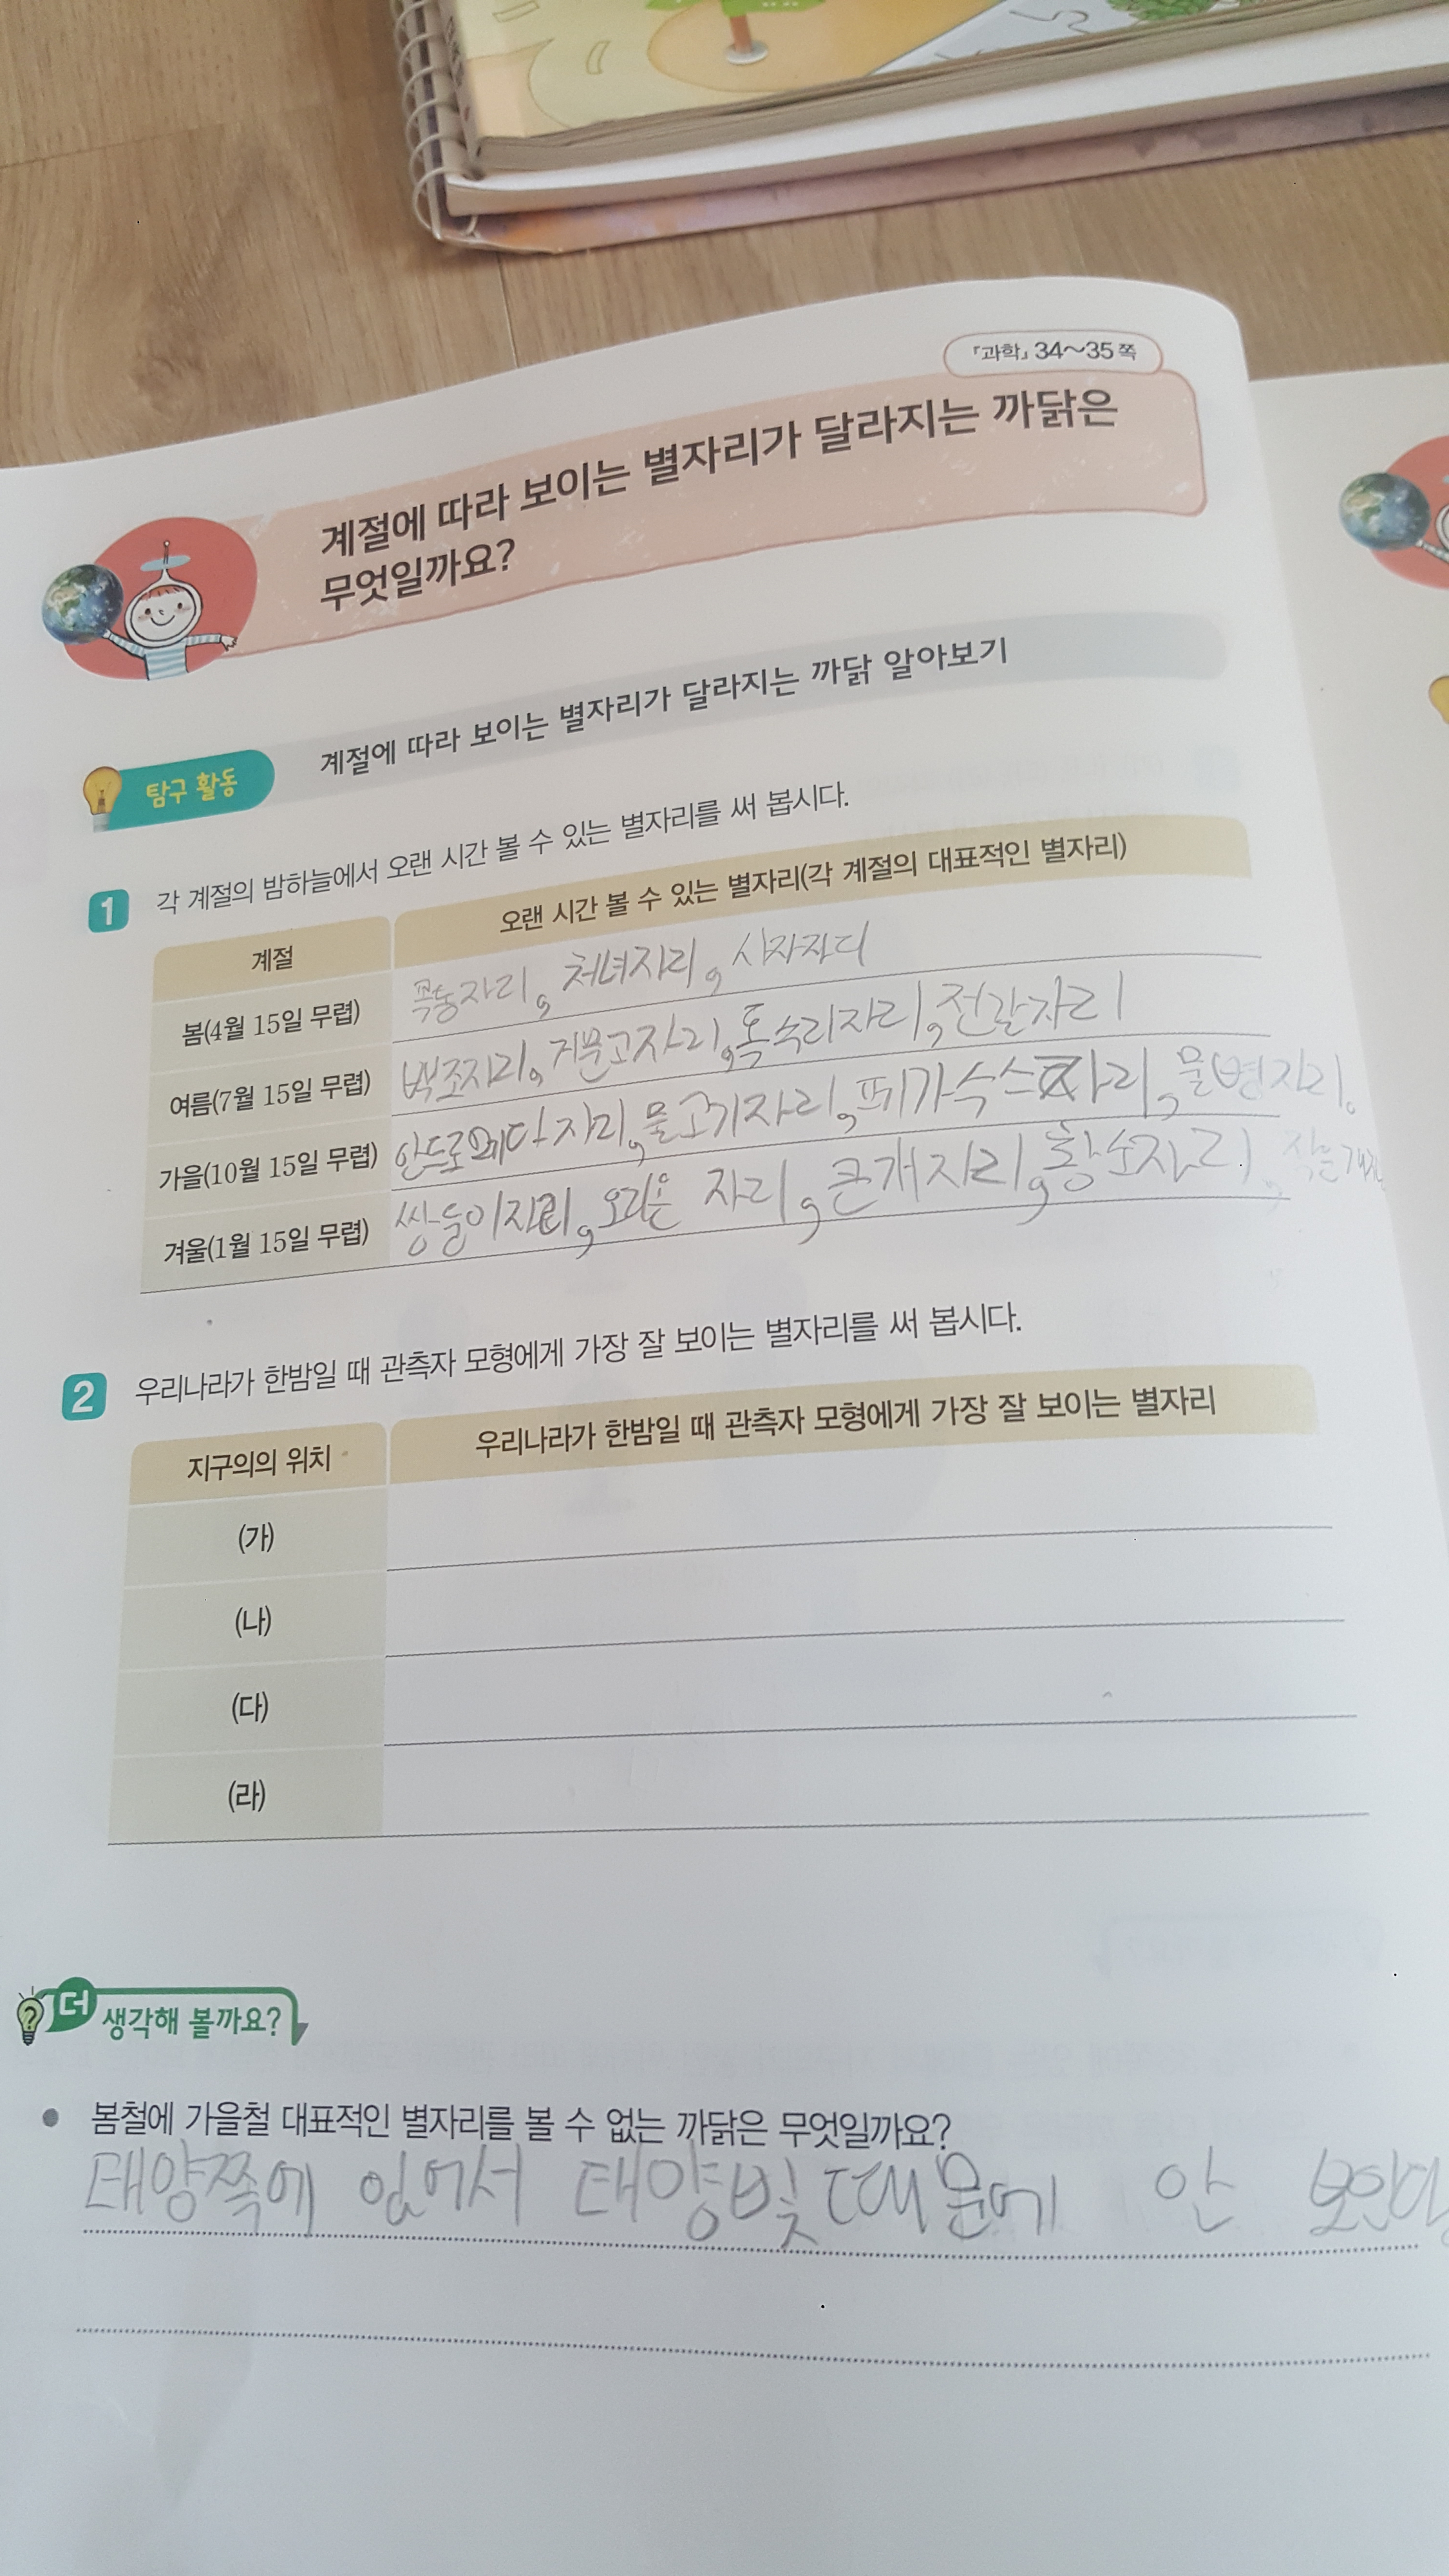 『과학』 34~35쪽
계절에 따라 보이는 별자리가 달라지는 까닭은
무엇일까요?
탐구 활동
계절에 따라 보이는 별자리가 달라지는 까닭 알아보기
1 각 계절의 밤하늘에서 오랜 시간 볼 수 있는 별자리를 써 봅시다.
계절 오랜 시간 볼 수 있는 별자리(각 계절의 대표적인 별자리)
봄(4월 15일 무렵) 목동자리, 처녀자리, 사자자리
여름(7월 15일 무렵) 백조자리, 거문고자리, 독수리자리, 전갈자리
가을(10월 15일 무렵) 안드로메다 자리, 물고기자리, 페가수스자리, 물병자리.
겨울(1월 15일 무렵) 쌍둥이자리, 오리온 자리, 큰개자리, 황소자리, 작은개
2 우리나라가 한밤일 때 관측자 모형에게 가장 잘 보이는 별자리를 써 봅시다.
지구의의 위치 우리나라가 한밤일 때 관측자 모형에게 가장 잘 보이는 별자리
(가)
(나)
(다)
(라)
더 생각해 볼까요?
● 봄철에 가을철 대표적인 별자리를 볼 수 없는 까닭은 무엇일까요?
태양쪽에 있어서 태양빛 때문에 안 보인다